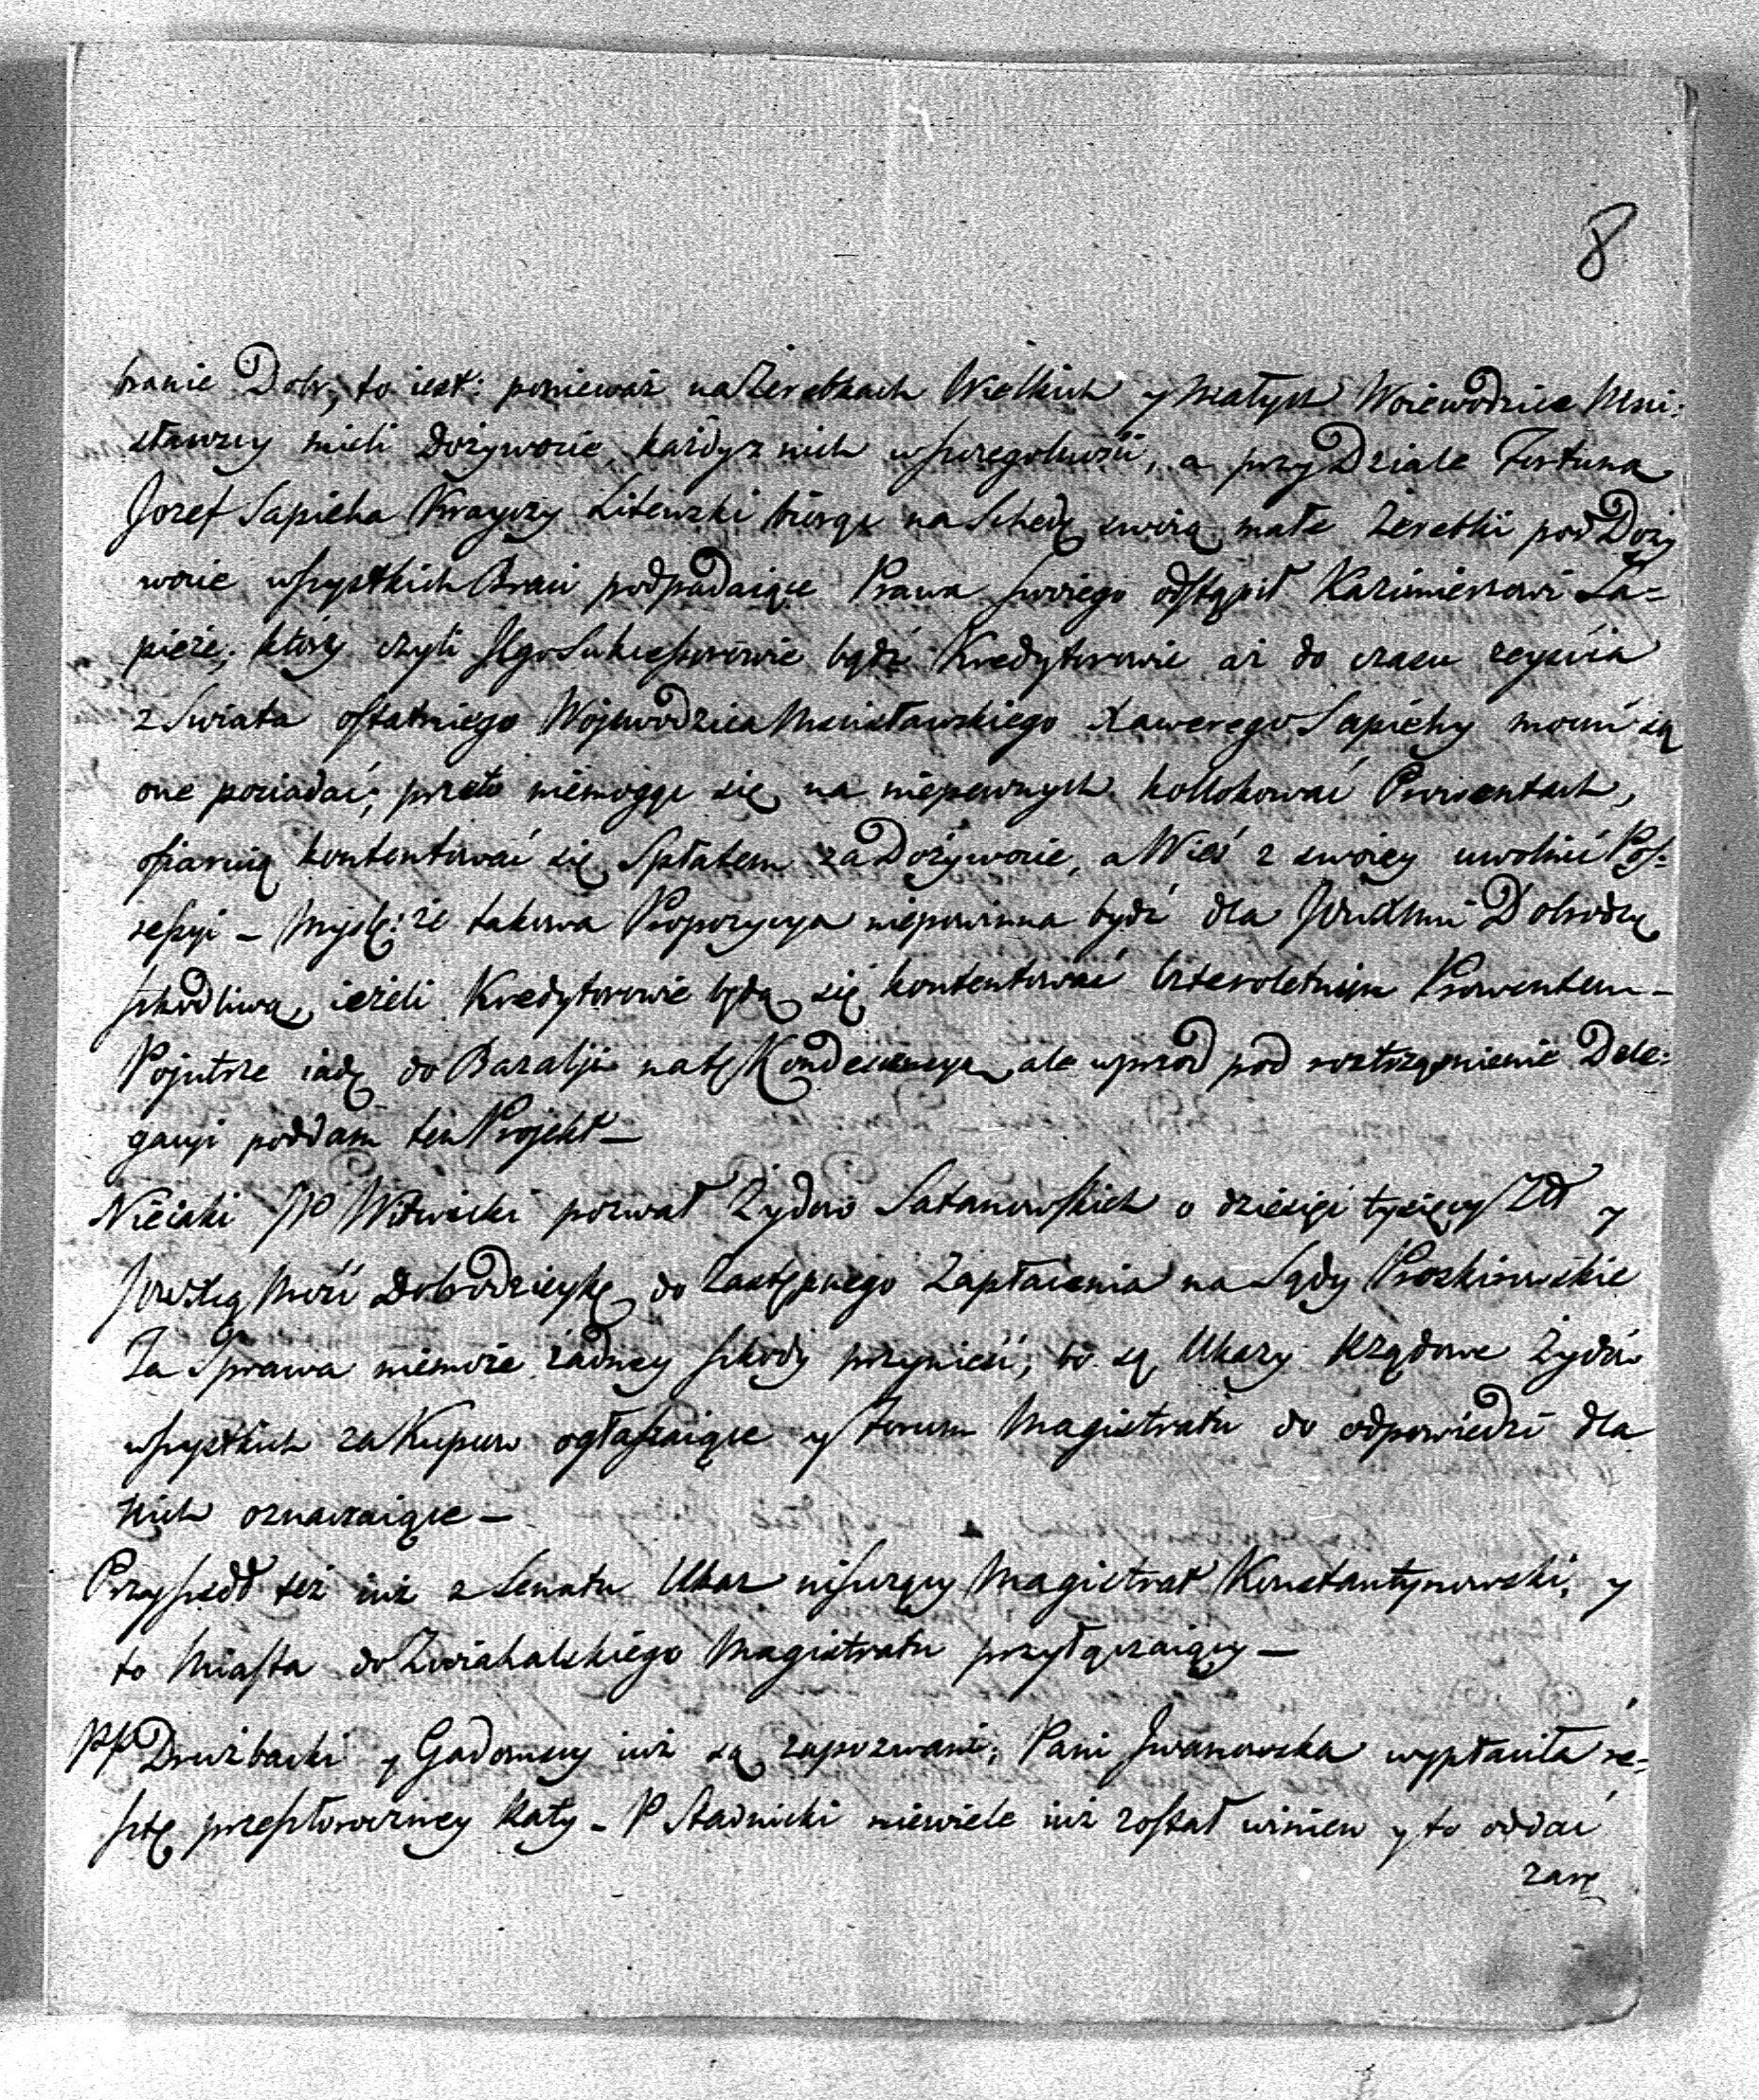 8
branie Dobr, to iest: ponieważ na Zerebkach Wielkich y Małych Woiewodzice Mści:
sławscy mieli Dożywocie każdy z nich w szczegolności, a przy Dziale Fortuna
Jozef Sapieha Krayczy Litewski biorąc na Schedę swoią małe Zerebki pod Doży
wocie wszystkich Braci podpadaiące Prawa swoiego odstąpił Kazimierzowi Sa=
pieże; który czyli Jego Sukcessorowie bądź Kredytorowie aż do czasu zeyścia
z Swiata ostatniego Wojewodzica Mscisławskiego Xawerego Sapiehy mocni są
one posiadać; przeto niemogąc się na niepewnych kollokować Prowentach,
ofiaruią kontentować się Spłatem za Dożywocie, a Wieś z swoiey uwolnić Pos:
sessyi – Myslę: że takowa Propozycya niepowinna bydź dla JWWMM Dobrodki
szkodliwą, ieżeli Kredytorowie będą się kontentować czteroletnim Prowentem –
Pojutrze iadę do Bazalji na tę Kondescensyą, ale wprzod pod roztrząśnienie Dele:
gacyi poddam ten Projekt –
Nieiaki JP Witwicki pozwał Zydow Satanowskich o dziesięć tysięcy Złł y
JWstą Mość Dobrodzieykę do Zastępnego Zapłacenia na Sądy Proskirowskie
Ta Sprawa niemoże żadney szkody przynieść, bo są Ukazy Rządowe Żydów
wszystkich za Kupcow ogłaszaiące y forum Magistratu do odpowiedzi dla
Nich oznaczaiące –
Przyszedł też iuż z Senatu Ukaz niszczący Magistrat Konstantynowski, y
to Miasta do Zwiahalskiego Magistratu przyłączaiący –
PP Drużbacki y Gadomscy iuż są zapozwani; Pani Iwanowska wypłaciła re=
sztę przeszłoroczney Raty – P Stadnicki niewiele iuż został winien y to oddać